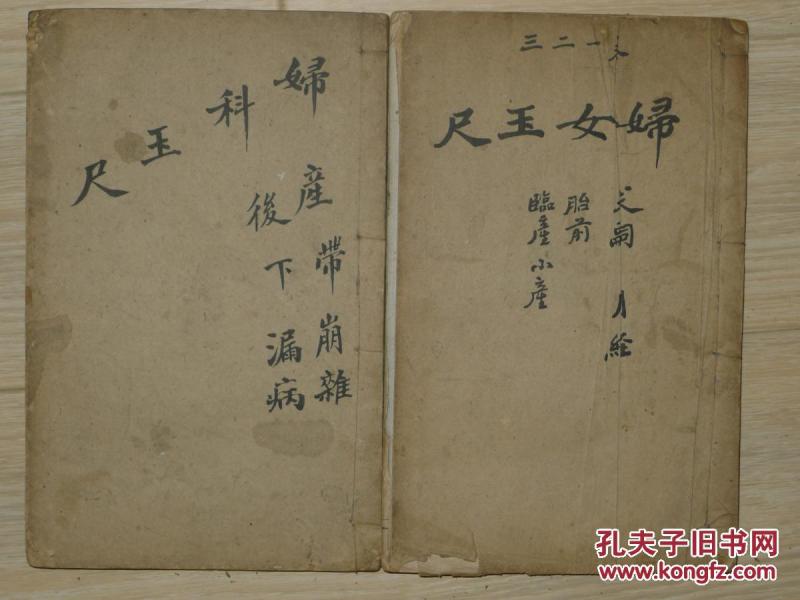 一二三
婦女玉尺
求嗣 月經
胎前
臨產 小產
婦科玉尺
產後
帶下
崩漏
雜病
孔夫子旧书网
www.kongfz.com